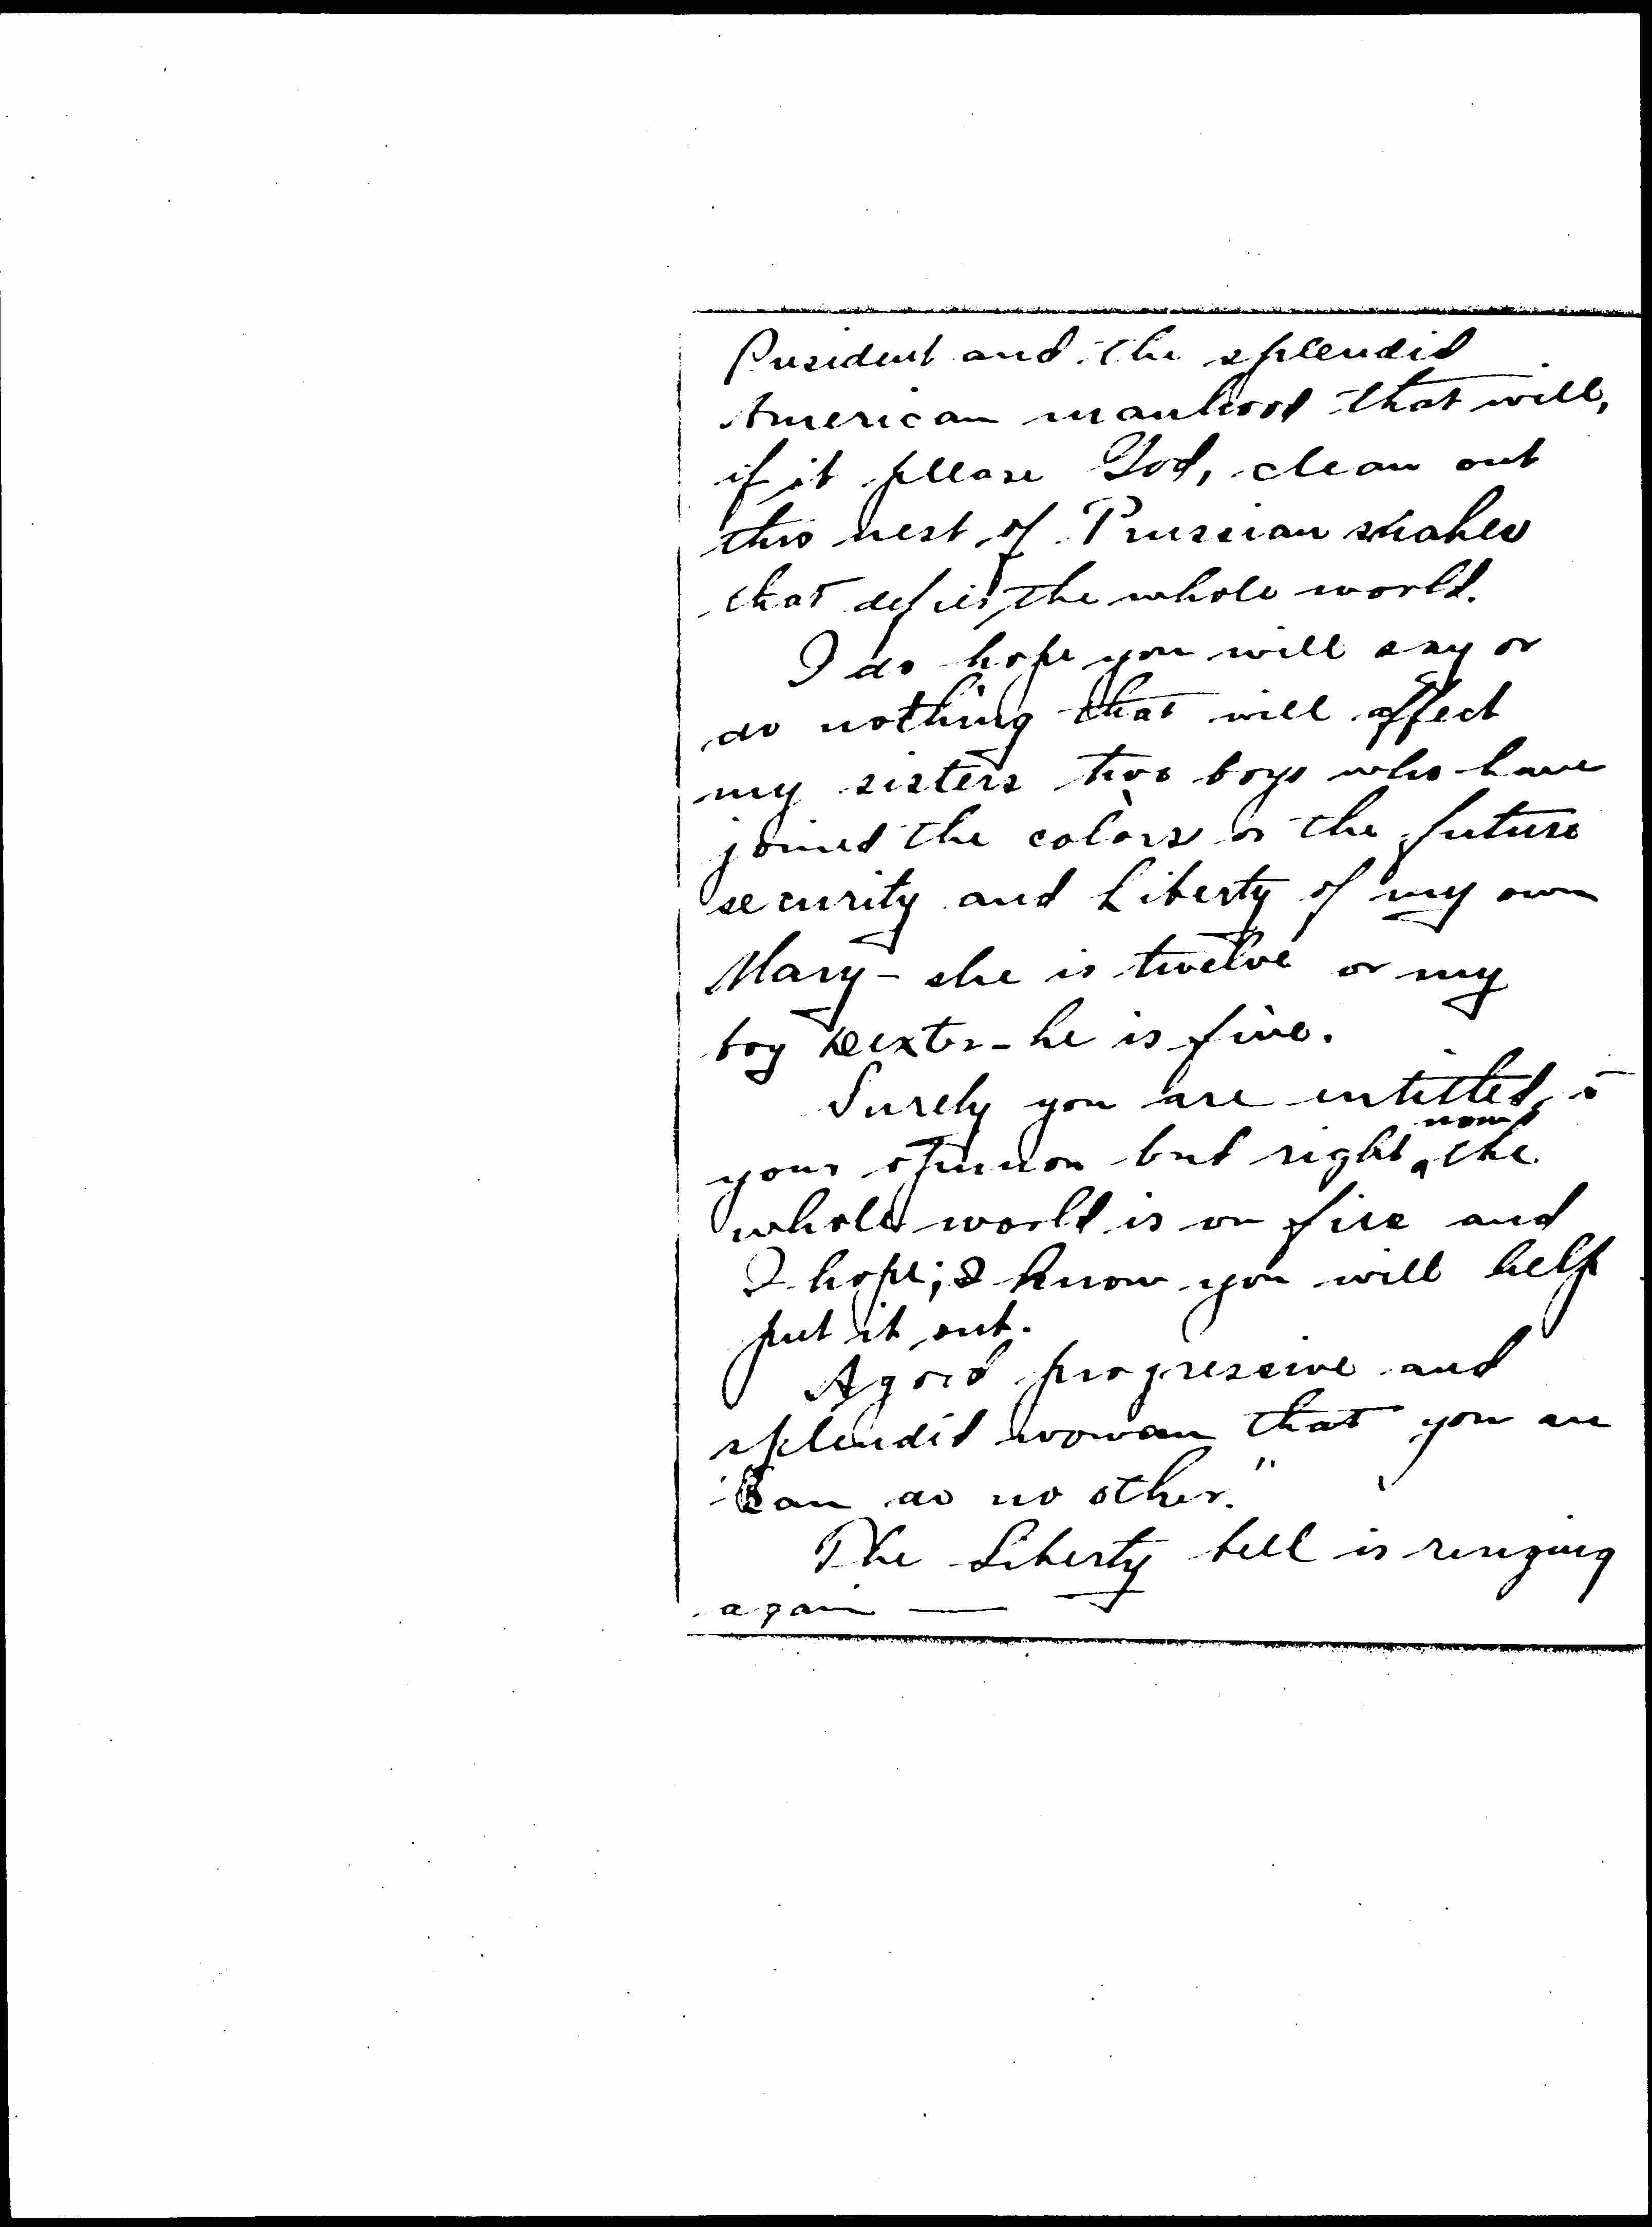 President and the splendid
American manhood that will,
if it please God, clean out
this nest of Prussian snakes
that defies the whole world.
I do hope you will say or
do nothing that will affect
my sisters two boys who have
joined the colors or the future
security and Liberty of my own
Mary - she is twelve or my
boy Dexter - he is five.
Surely you are entitled to
your opinion but right now the
whole world is on fire and
I hope; I know you will help
put it out.
A good progressive and
splendid woman that you are
"Can do no other."
The Liberty bell is ringing
again —